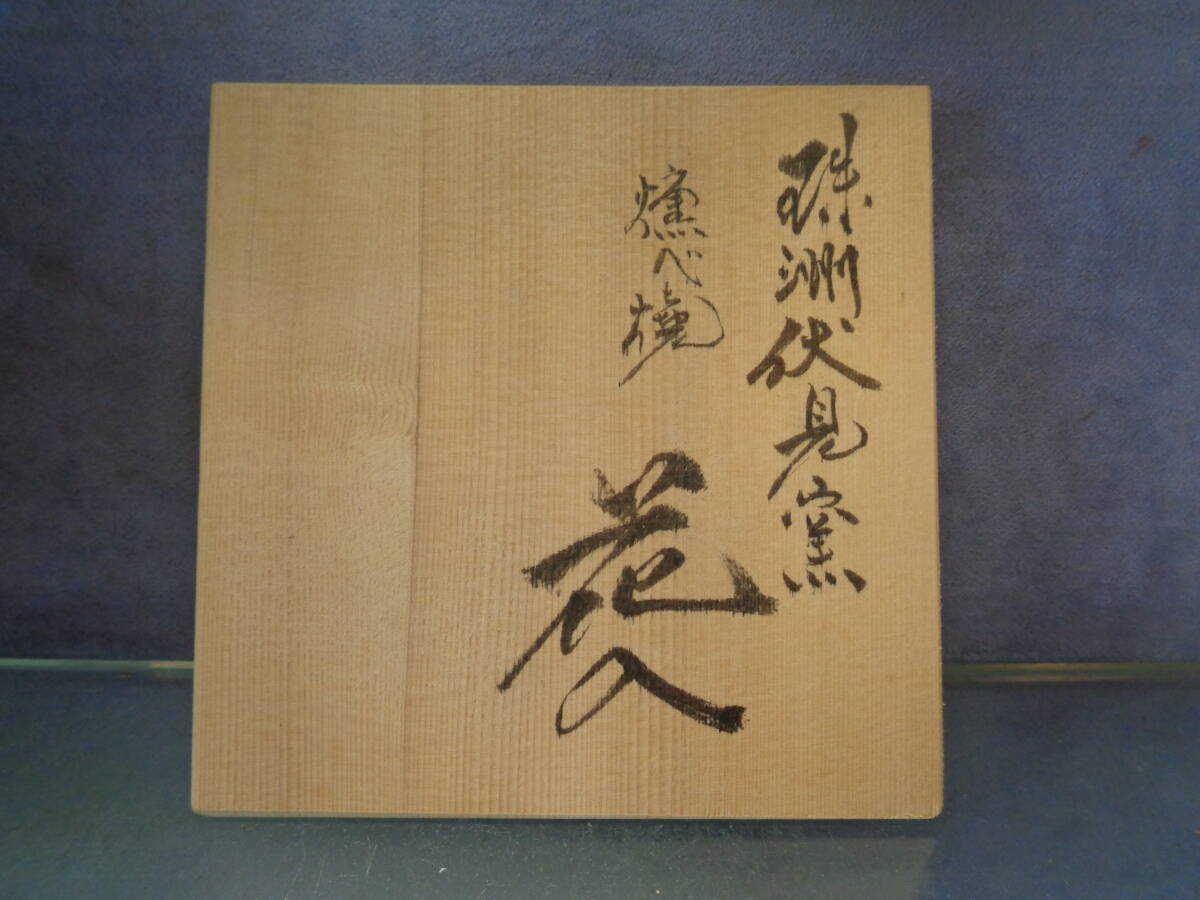 珠洲伏見窯
燻べ焼
花入